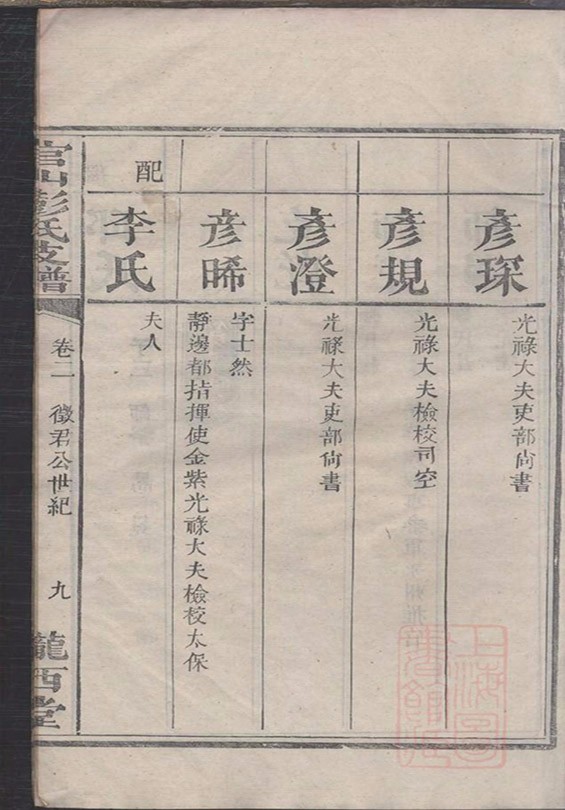 彥琛
光祿大夫吏部尙書
彥規
光祿大夫檢校司空
彥澄
光祿大夫吏部尙書
彥晞
字士然
靜邊都指揮使金紫光祿大夫檢校太保
配
李氏
夫人
官山彭氏支譜
卷二
徵君公世紀
九
隴西堂
上海圖書館藏